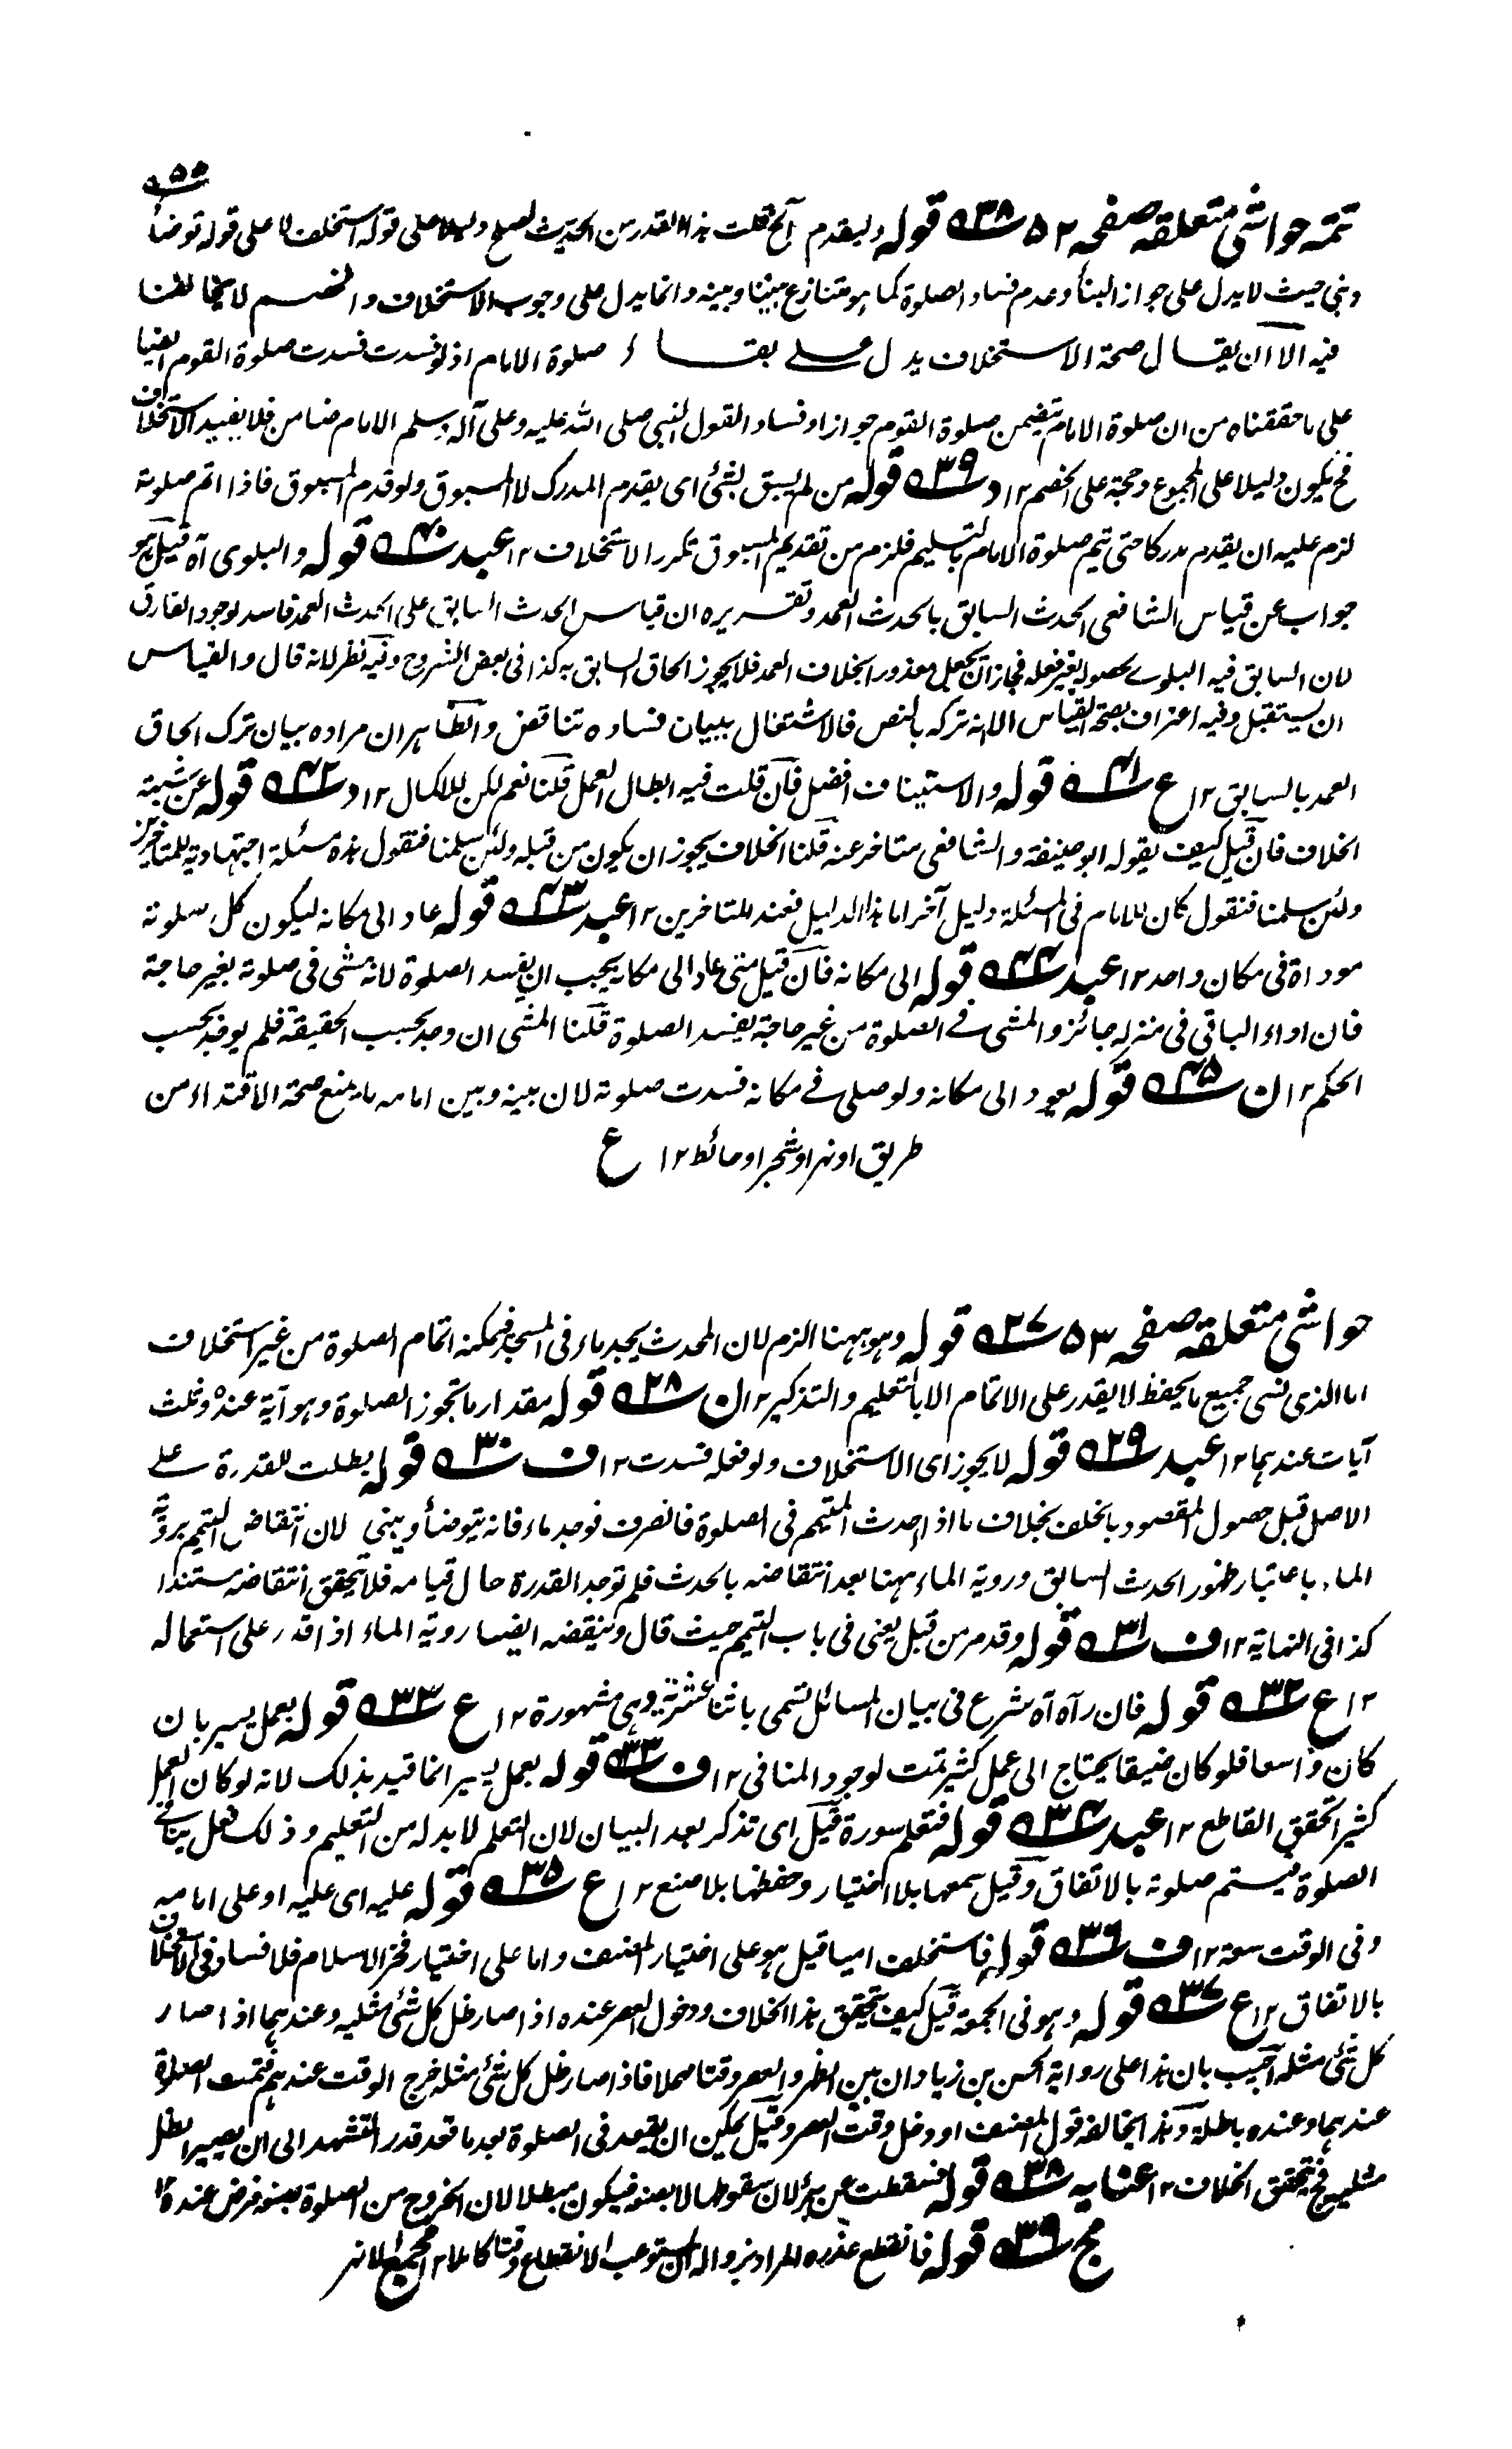 ٥٥
تتمه حواشی متعلقه صفحه ٥٢ ٣٨ قوله وليقدم الخ قلت هذا القدر من الحديث يصلح دليلا على قوله استخلف لا على قوله توضأ
وبنى حيث لا يدل على جواز البنأ وعدم فساد الصلوة كما هو متنازع بيننا وبينه وانما يدل على وجوب الاستخلاف والخصم لا يخالفنا
فيه الا ان يقال صحة الاستخلاف يدل على بقاء صلوة الامام اذ لو فسدت فسدت صلوة القوم ايضا
على ما حققناه من ان صلوة الامام يتضمن صلوة القوم جوازا وفسادا لقول النبي صلى الله عليه وعلى آله وسلم الامام ضامن فلا يفيد الاستخلاف
فح يكون دليلا على المجموع وحجة على الخصم ١٢ د ٣٩ قوله من لم يسبق بشئ اى يقدم المدرك لا المسبوق ولو قدم المسبوق فاذا اتم صلوته
لزم عليه ان يقدم مدركا حتى يتم صلوة الامام بالتسليم فلزم من تقديم المسبوق تكرر الاستخلاف ١٢ عبد ٤٠ قوله والبلوى آه قيل هو
جواب عن قياس الشافعى الحدث السابق بالحدث العمد وتقريره ان قياس الحدث السابق على الحدث العمد فاسد لوجود الفارق
لان السابق فيه البلوے لحصوله بغير فعله فجاز ان يجعل معذورا بخلاف العمد فلا يجوز الحاق السابق به كذا فى بعض الشروح وفيه نظر لانه قال والقياس
ان يستقبل وفيه اعتراف بصحة القياس الا انه تركه بالنص فالاشتغال ببيان فساده تناقض والظاهر ان مراده بيان ترك الحاق
العمد بالسابق ١٢ ع ٤١ قوله والاستيناف افضل فان قلت فيه ابطال العمل قلنا نعم لكن للاكمال ١٢ د ٤٢ قوله عن شبهة
الخلاف فان قيل كيف يقوله ابو حنيفة والشافعى متاخر عنه قلنا الخلاف يجوز ان يكون من قبله ولئن سلمنا فنقول هذه مسئلة اجتهادية للمتاخرين
ولئن سلمنا فنقول كان للامام فى المسئلة دليل آخر اما هذا الدليل فعند المتاخرين ١٢ عبد ٤٣ قوله عاد الى مكانه ليكون كل صلوته
موداة فى مكان واحد ١٢ عبد ٤٤ قوله الى مكانه فان قيل متى عاد الى مكانه يجب ان يفسد الصلوة لانه مشى فى صلوته بغير حاجة
فان اداء الباقى فى منزله جائز والمشى فے الصلوة من غير حاجة يفسد الصلوة قلنا المشى ان وجد بحسب الحقيقة فلم يوجد بحسب
الحكم ١٢ ن ٤٥ قوله يعود الى مكانه ولو صلى فے مكانه فسدت صلوته لان بينه وبين امامه ما يمنع صحة الاقتداء من
طريق او نهر او شجر او حائط ١٢ ع
حواشی متعلقه صفحه ٥٣ ٢٧ قوله وهو ههنا الزم لان المحدث يجد ماء فى المسجد فيمكنه اتمام الصلوة من غير استخلاف
اما الذى نسى جميع ما يحفظ لا يقدر على الاتمام الا بالتعليم والتذكير ١٢ ن ٢٨ قوله مقدار ما تجوز الصلوة وهو آية عنده وثلث
آيات عندهما ١٢ عبد ٢٩ قوله لا يجوز اى الاستخلاف ولو فعله فسدت ١٢ ف ٣٠ قوله بطلت للقدرة علے
الاصل قبل حصول المقصود بالخلف بخلاف ما اذا احدث المتيمم فى الصلوة فانصرف فوجد ماء فانه يتوضأ ويبنى لان انتقاض التيمم برؤية
الماء باعتبار ظهور الحدث السابق وروية الماء ههنا بعد انتقاضه بالحدث فلم توجد القدرة حال قيامه فلا يتحقق انتقاضه مستندا
كذا فى النهاية ١٢ ف ٣١ قوله وقد مر من قبل يعنى فى باب التيمم حيث قال وينقضه ايضا روية الماء اذا قدر على استعماله
١٢ ع ٣٢ قوله فان رآه آه شرع فى بيان المسائل تسمى باثنا عشرية وهى مشهورة ١٢ ع ٣٣ قوله بعمل يسير بان
كان واسعا فلو كان ضيقا يحتاج الى عمل كثير تمت لوجود المنافى ١٢ ف ٣٣ قوله بعمل يسير انما قيد بذلك لانه لو كان العمل
كثيرا تحقق القاطع ١٢ عبد ٣٤ قوله فتعلم سورة قيل اى تذكر بعد النسيان لان التعلم لا بد له من التعليم وذلك فعل ينافے
الصلوة فيستم صلوته بالاتفاق وقيل سمعها بلا اختيار وحفظها بلا صنع ١٢ ع ٣٥ قوله عليه اى عليه او على امامه
وفى الوقت سعة ١٢ ف ٣٦ قوله فاستخلف اميا قيل هو على اختيار المصنف واما على اختيار فخر الاسلام فلا فساد فى الاستخلاف
بالاتفاق ١٢ ع ٣٧ قوله وهو فى الجمعة قيل كيف يتحقق هذا الخلاف ودخول العصر عنده اذا صار ظل كل شئ مثليه وعندهما اذا صار
كل شئ مثله اجيب بان هذا على رواية الحسن بن زياد ان بين الظهر والعصر وقتا مهملا فاذا صار ظل كل شئ مثله خرج الوقت عندهم فتمت الصلوة
عندهما وعنده باطلة وهذا يخالفه قول المصنف او دخل وقت العصر وقيل يمكن ان يقعد فى الصلوة بعد ما قعد قدر التشهد الى ان يصير الظل
مثليه فح يتحقق الخلاف ١٢ عنايه ٣٨ قوله فسقطت عن برء لان سقوطها لا بصنعه فيكون مبطلا لان الخروج من الصلوة بصنعه فرض عنده ١٢
مج ٣٩ قوله فانقطع عذره المراد بزواله ان استوعب الانقطاع وقتا كاملا ١٢ مجمع الانهر